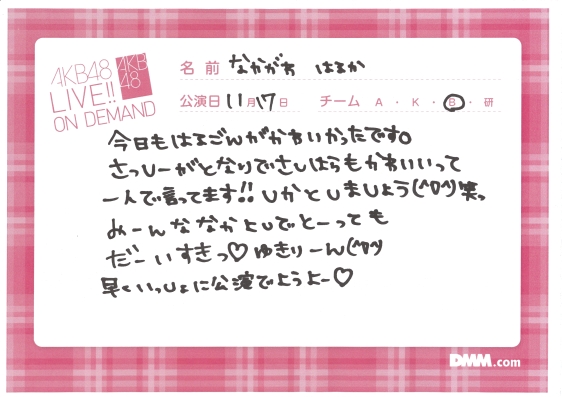 AKB48
LIVE!!
ON DEMAND
AKB
48
名前 なかがわ はるか
公演日 11月17日 チーム A・K・B・研
今日もはるごんがかわいかったです。
さっしーがとなりでさしはらもかわいいって
一人で言ってます!!しかとしましょう(^O^)笑っ
みーんなななかよしでとーっても
だーいすきっ♡ゆきりーん(^O^)
早くいっしょに公演でようよー♡
DMM.com